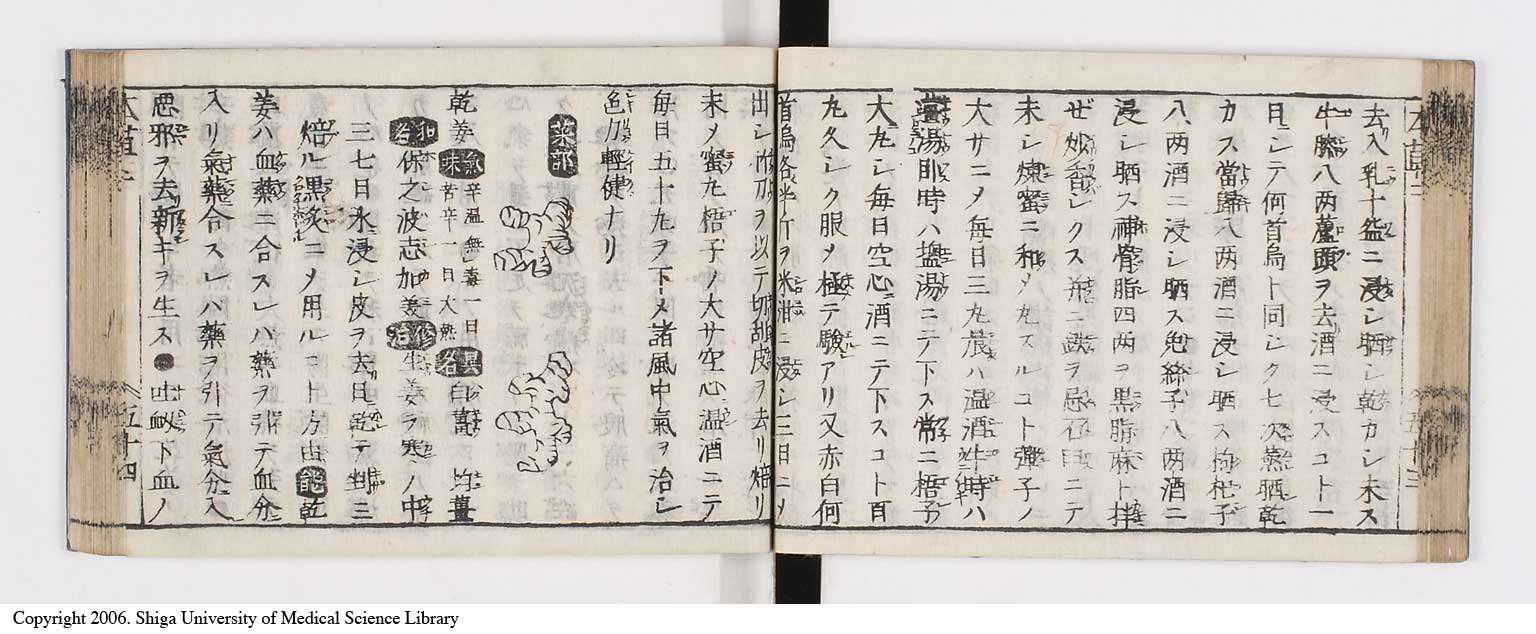 去入乳十盆ニ浸シ晒シ乾カシ末ス
牛膝八両蘆頭ヲ去酒ニ浸スコト一
日ニシテ何首烏ト同シク七次蒸晒乾
カス當歸八両酒ニ浸シ晒ス枸杞子
八両酒ニ浸シ晒ス兔絲子八両酒ニ
浸シ晒ス補骨脂四両ヲ黒脂麻ト拌
ゼ炒香シクス 鉄ヲ忌石臼ニテ
末シ煉蜜ニ和メ丸スルコト彈子ノ
大サニメ毎日三丸晨ハ温酒午時ハ
薑湯臥時ハ塩湯ニテ下ス常ニ梧子
大丸シ毎日空心酒ニテ下スコト百
丸久シク服メ極テ験アリ又赤白何
首烏各半斤ヲ米泔ニ浸シ三日ニメ
出シ竹刀ヲ以テ切皮ヲ去リ焙リ
末メ蜜丸梧子ノ大サ空心温酒ニテ
毎日五十丸ヲ下メ諸風中氣ヲ治シ
色力輕健ナリ
菜部
乾姜 氣味 辛温無シ毒一日
苦辛一日大熱 異名 白薑 均薑
和名 保之波志加美 修治 生姜ヲ寒ノ中
三七日水浸シ皮ヲ去日乾テ三
焙ル黒炙ニメ用ルコト方由 能 乾
姜ハ血藥ニ合スレハ藥ヲ引テ血分
入リ氣藥合スレハ藥ヲ引テ氣分入
悪邪ヲ去新キヲ生ス●吐衂下血ノ
本草二 五十四
Copyright 2006. Shiga University of Medical Science Library